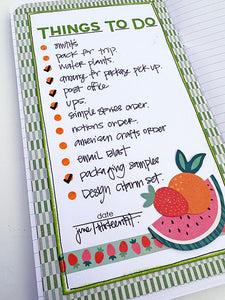 THINGS TO DO
outfits
pack for trip.
water plants.
grocery for parking pick up.
post office
ups.
simple stories order.
notions order.
american crafts order
email blast
packaging samples
Design charm set.
date
june thirteenth